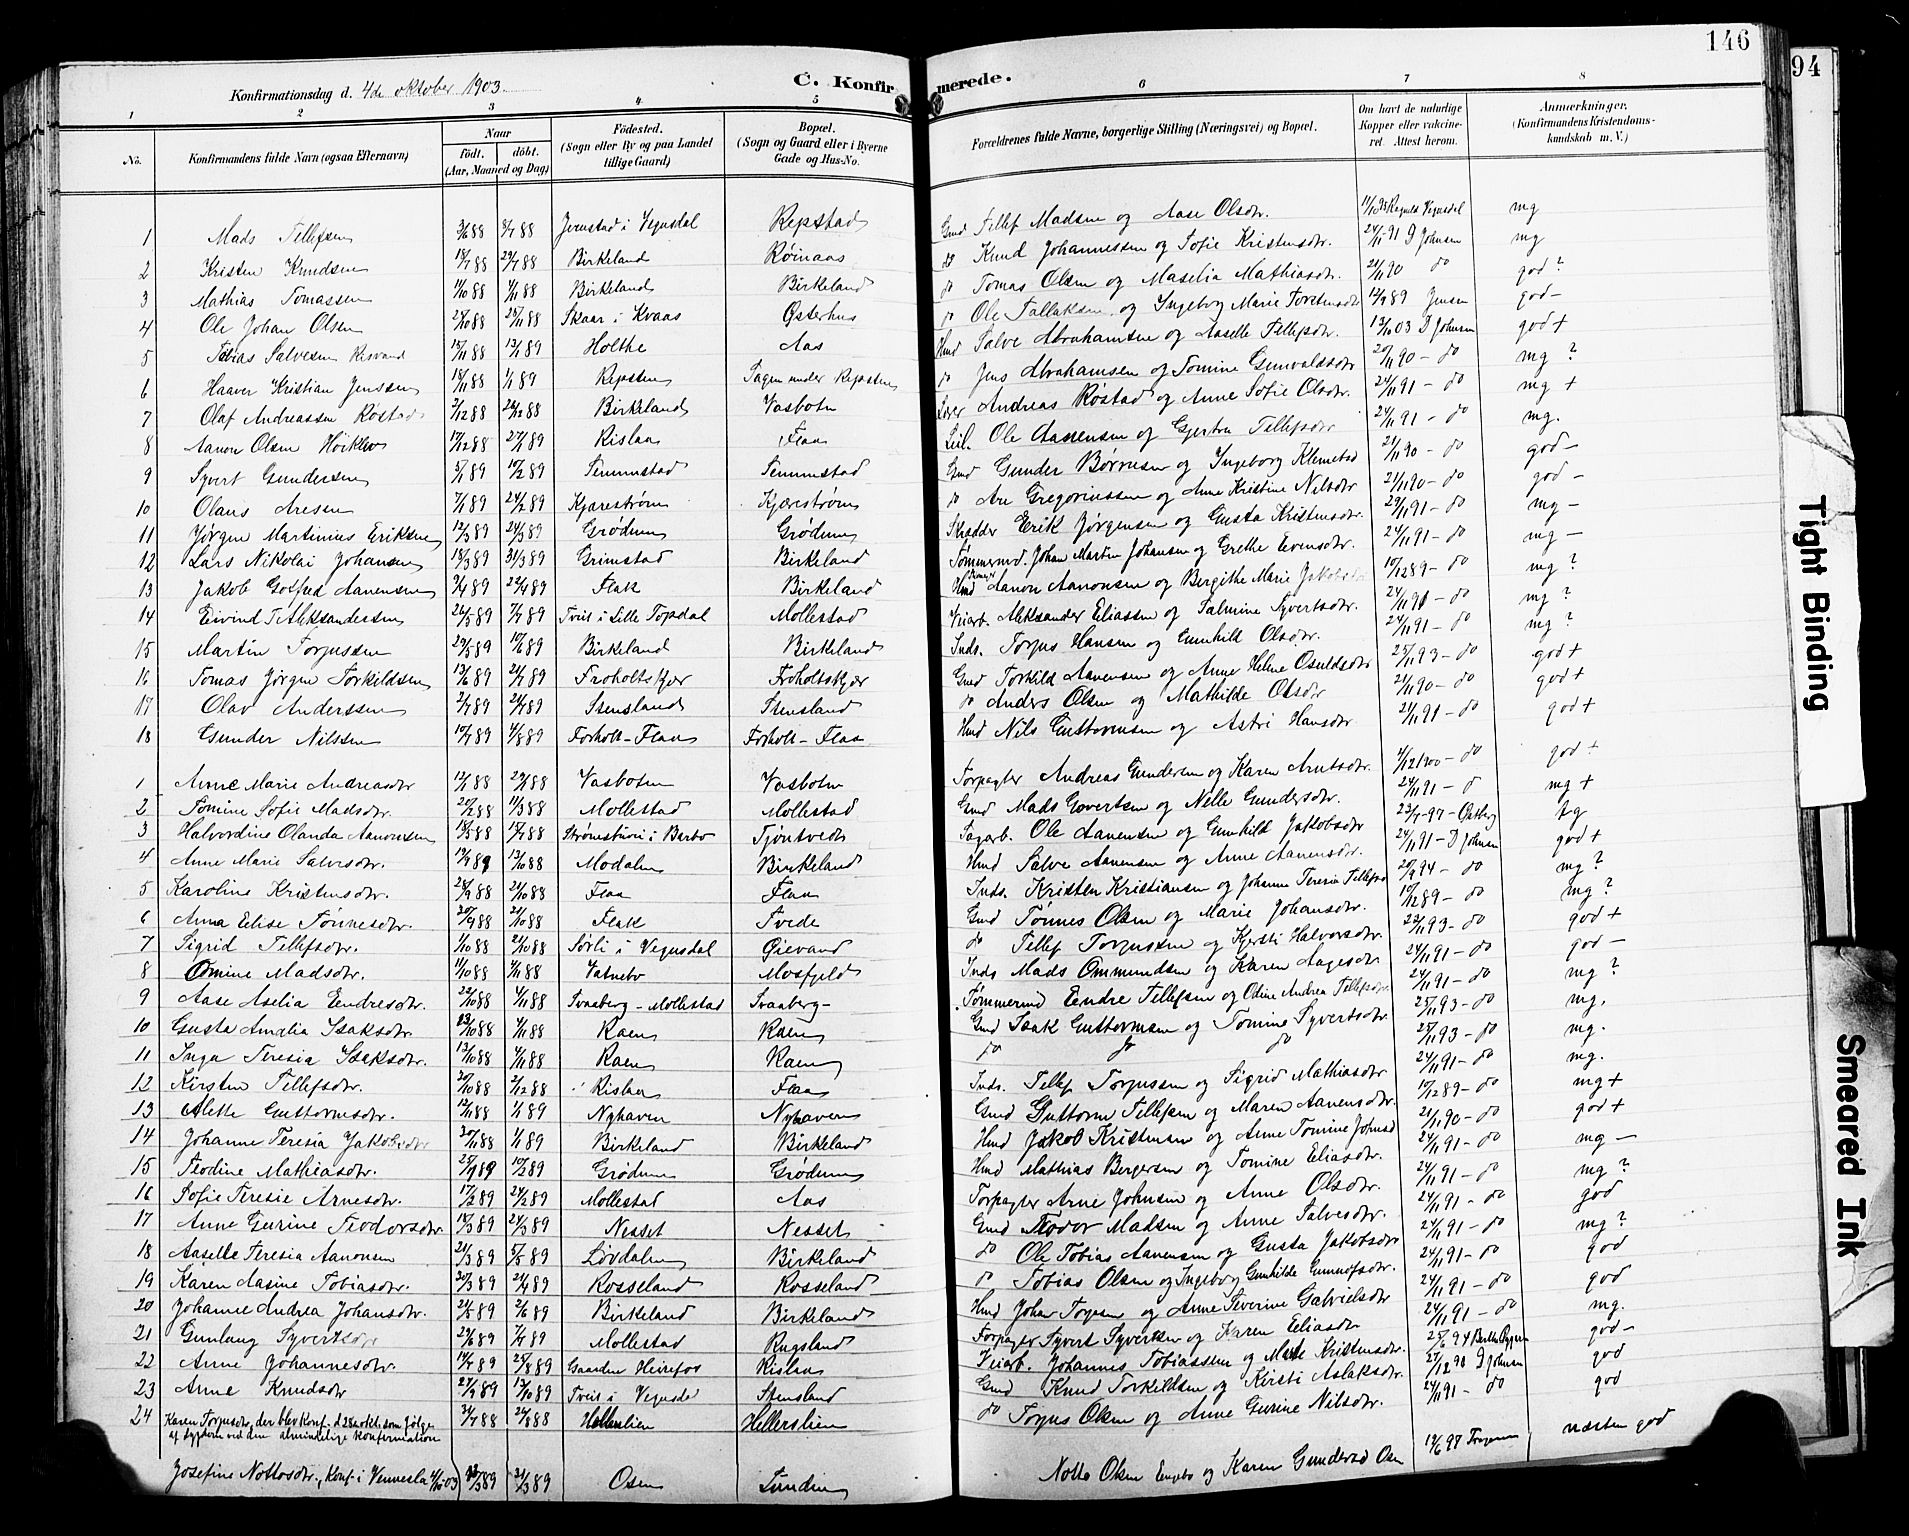 146
94
Konfirmationsdag d. 4de oktober 1903.
C. Konfirmerede.
1 2 3 4 5 6 7 8
No. Konfirmandens fulde Navn (ogsaa Efternavn) Naar født. døbt. (Aar, Maaned og Dag) Fødested. (Sogn eller By og paa Landet tillige Gaard) Bopæl. (Sogn og Gaard eller i Byerne Gade og Hus-No. Forældrenes fulde Navne, borgerlige Stilling (Næringsvei) og Bopæl. Om havt de naturlige Kopper eller vaccineret. Attest herom. Anmærkninger. (Konfirmandens Kristendomskundskab m. V.)
1 Mads Tellefsen 88 88 i Vegusdal Repstad Gmd Tellef Madsen og Aase Olsdtr. mg
2 Kristen Knudsen 18/7 88 29/7 88 Birkeland Røinaas do Knud Johannessen og Sofie Kristensdtr. 24/11 91 D Johnsen mg
3 Mathias Tomassen 11/10 88 88 Birkeland Birkeland do Tomas Olsen og Maselia Mathiasdtr. 21/11 90 do god ?
4 Ole Johan Olsen 88 25/11 88 Skaar i Kvaas Østerhus do Ole Tallaksen og Ingeborg Marie Torstensdtr 12/9 89 Jensen god -
5 Tobias Salvesen 15/11 88 89 Holthe Aas Hmd Salve Abrahamsen og Aaselle Tellefsdtr. 13/10 03 D Johnsen god +
6 Haaver Kristian Jenssen 18/11 88 1/1 89 Repsten Tagen under Repsten do Jens Abrahamsen og Tomine Gunvaldsdtr. 90 - do mg ?
7 Olaf Andreassen Røstad 2/12 88 26/12 88 Birkeland Vasbotn Lærer Andreas Røstad og Anne Sofie Olsdtr. 24/11 91 - do mg +
8 Aanon Olsen Høiklev 17/12 88 27/1 89 Rislaa Flaa Leil. Ole Aanensen og Gjertru Tellefsdtr 24/11 91 - do mg.
9 Syvert Gundersen 5/1 89 10/2 89 Senumstad Senumstad Gmd Gunder Børresen og Ingeborg 21/11 90 - do god -
10 Olaus Aresen 7/1 89 24/2 89 Kjærestrøm Kjærestrøm do Are Gregoriussen og Anne Kristine Nilsdtr 21/11 90 - do god -
11 Jørgen Martinius Eriksen 12/3 89 24/3 89 Grødum Grødum Skrædder Erik Jørgensen og Gusta Kristensdtr. 24/11 91 - do mg -
12 Lars Nikolai Johansen 18/3 89 31/3 89 Grimstad Birkeland Tømmermd. Johan Martin Johansen og Grethe Evensdtr. 24/11 91 - do mg -
13 Jakob Gotfred Aanensen 89 22/4 89 Flak Birkeland Hmd Aanon Aanonsen og Bergithe Marie Jakobsdtr 10/12 89 - do mg ?
14 Eivind T Aleksandersen 26/5 89 7/7 89 Tveit i Lille Topdal Mollestad Veiarb. Aleksander Eliassen og Salmine Syvertsdtr. 24/11 91 - do mg ?
15 Martin Torjussen 29/5 89 10/6 89 Birkeland Birkeland Inds. Torjus Hansen og Gunhild Olsdtr. 24/11 91 - do mg ?
16 Tomas Jørgen Torkildsen 13/6 89 21/7 89 Froholtskjær Froholtskjær Gmd Torkild Aanensen og Anne Helene Osuldsdtr 25/11 93 - do god +
17 Olav Anderssen 2/7 89 21/7 89 Stensland Stensland do Anders Olsen og Mathilde Olsdtr 21/11 90 - do god +
18 Gunder Nilssen 10/7 89 4/8 89 Forholt - Flaa Forholt - Flaa Hmd Nils Guttormsen og Astri Hansdtr 24/11 91 - do god +
1 Anne Marie Andreasdtr 12/1 88 29/1 88 Vasbotn Vasbotn Forpagter Andreas Gundersen og Karen Arntsdtr. 1900 - do god +
2 Tomine Sofie Madsdtr. 20/2 88 11/3 88 Mollestad Mollestad Gmd Mads Govertsen og Nelle Gundersdtr. 24/11 91 - d mg +
3 Halvordine Olanda Aanonsen 18/5 88 15/7 88 i Barbo Tjøntvedt Fagarb. Ole Aanensen og Gunhild Jakobsdtr 23/7 97 - tg
4 Anne Marie Salvesdtr. 88 13/10 88 Modalen Birkeland Hmd Salve Aanensen og Anne Aanensdtr. 24/11 91 - D Johnsen god +
5 Karoline Kristensdtr. 24/9 88 21/10 88 Flaa Flaa Inds. Kristen Kristiansen og Johanne Teresia Tellefsd 20/9 94 - do mg ?
6 Anna Elise Tønnesdtr. 20/9 88 21/10 88 Flak Tvede Gmd Tønnes Olsen og Marie Johansdtr. 10/12 89 - do mg ?
7 Sigrid Tellefsdtr. 1/10 88 21/10 88 Sørli i Vegusdal Øievand do Tellef Torjussen og Kjersti Halvorsdtr. 93 - do god +
8 Omine Madsdtr. 11/10 88 4/11 88 Vatnebo Mosfjeld Inds Mads Ommundsen og Karen Aagesdtr 24/11 91 - do god -
9 Aase Aselia Eendresdtr. 22/10 88 4/11 88 Svaaberg - Mollestad Svaaberg - Tømmermd Eendre Tellefsen og Odine Andrea Tellefsdtr. 24/11 91 - do mg ?
10 Gusta Amalia Isaksdtr. 13/10 88 4/11 88 Raen Raen Gmd Isak Guttormsen og Tomine Syvertsdtr 25/11 93 - do mg.
11 Inga Teresia Isaksdtr. 13/10 88 4/11 88 Raen Raen do do do 25/11 93 - do mg.
12 Kirsten Tellefsdtr. 20/10 88 2/12 88 Rislaa Flaa Inds. Tellef Torjussen og Sigrid Mathiasdtr 24/11 91 - do mg.
13 Alette Guttormsdtr. 12/11 88 1/1 89 Nyhaven Nyhaven Gmd Guttorm Tellefsen og Maren Aanensdtr. 10/12 89 - do mg +
14 Johanne Teresia Jakobsdtr 30/11 88 1/1 89 Birkeland Birkeland Hmd Jakob Kristensen og Anne Tomine Johnsd 21/11 90 - do god +
15 Teodine Mathiasdtr. 89 10/2 89 Grødum Grødum Hmd Mathias Bergersen og Tomine Eliasdtr. 24/11 91 - do mg -
16 Sofie Teresie Arnesdtr. 17/2 89 24/2 89 Mollestad Aas Forpagter Arne Johnsen og Anne Olsdtr. 24/11 91 - do mg ?
17 Anne Gurine Teodorsdtr 14/3 89 24/3 89 Nesset Nesset Gmd Teodor Madsen og Anne Salvesdtr. 24/11 91 - do god
18 Aaselle Teresia Aanonsen 21/3 89 5/5 89 Løvdalen Birkeland do Ole Tobias Aanensen og Gusta Jakobsdtr 24/11 91 - do mg ?
19 Karen Aasine Tobiasdtr. 30/3 89 21/4 89 Rosseland Rosseland do Tobias Olsen og Ingeborg Gunhilde Gunulfsdtr. 24/11 91 - do god
20 Johanne Andrea Johansdtr. 21/5 89 2/6 89 Birkeland Birkeland Hmd Johan Torjesen og Anne Severine Gabrielsdtr 24/11 91 - do god
21 Gunlaug Syvertsdtr 29/6 89 89 Mollestad Rugsland Forpagter Syvert Syvertsen og Karen Eliasdtr 24/11 91 - do mg.
22 Anne Johannesdtr. 14/7 89 25/8 89 Gaarden Heirefos Rislaa Veiarb. Johannes Tobiassen og Kristensdtr. 25/6 94 god -
23 Anne Knudsdtr 27/9 89 13/10 89 Tveit i Vegusdal Stensland Gmd Knud Torkildsen og Kirsti Aslaksdtr. 27/12 90 D Johnsen god
24 Karen Torjusdtr, der blev Konf. d 25 okt. som følge af sygdom ved den almindelige konfirmation 31/7 88 26/8 88 Hellerslien Hellerslien do Torjus Olsen og Anne Gurine Nilsdtr. 24/11 91 - do god
Josefine Nottosdtr., Konf. i Vennesla 4/10 03 89 31/3 89 Osen Lunden Notto Olsen Engebo og Karen Gundersd Osen 97 næsten god
Tight Binding
Smeared Ink